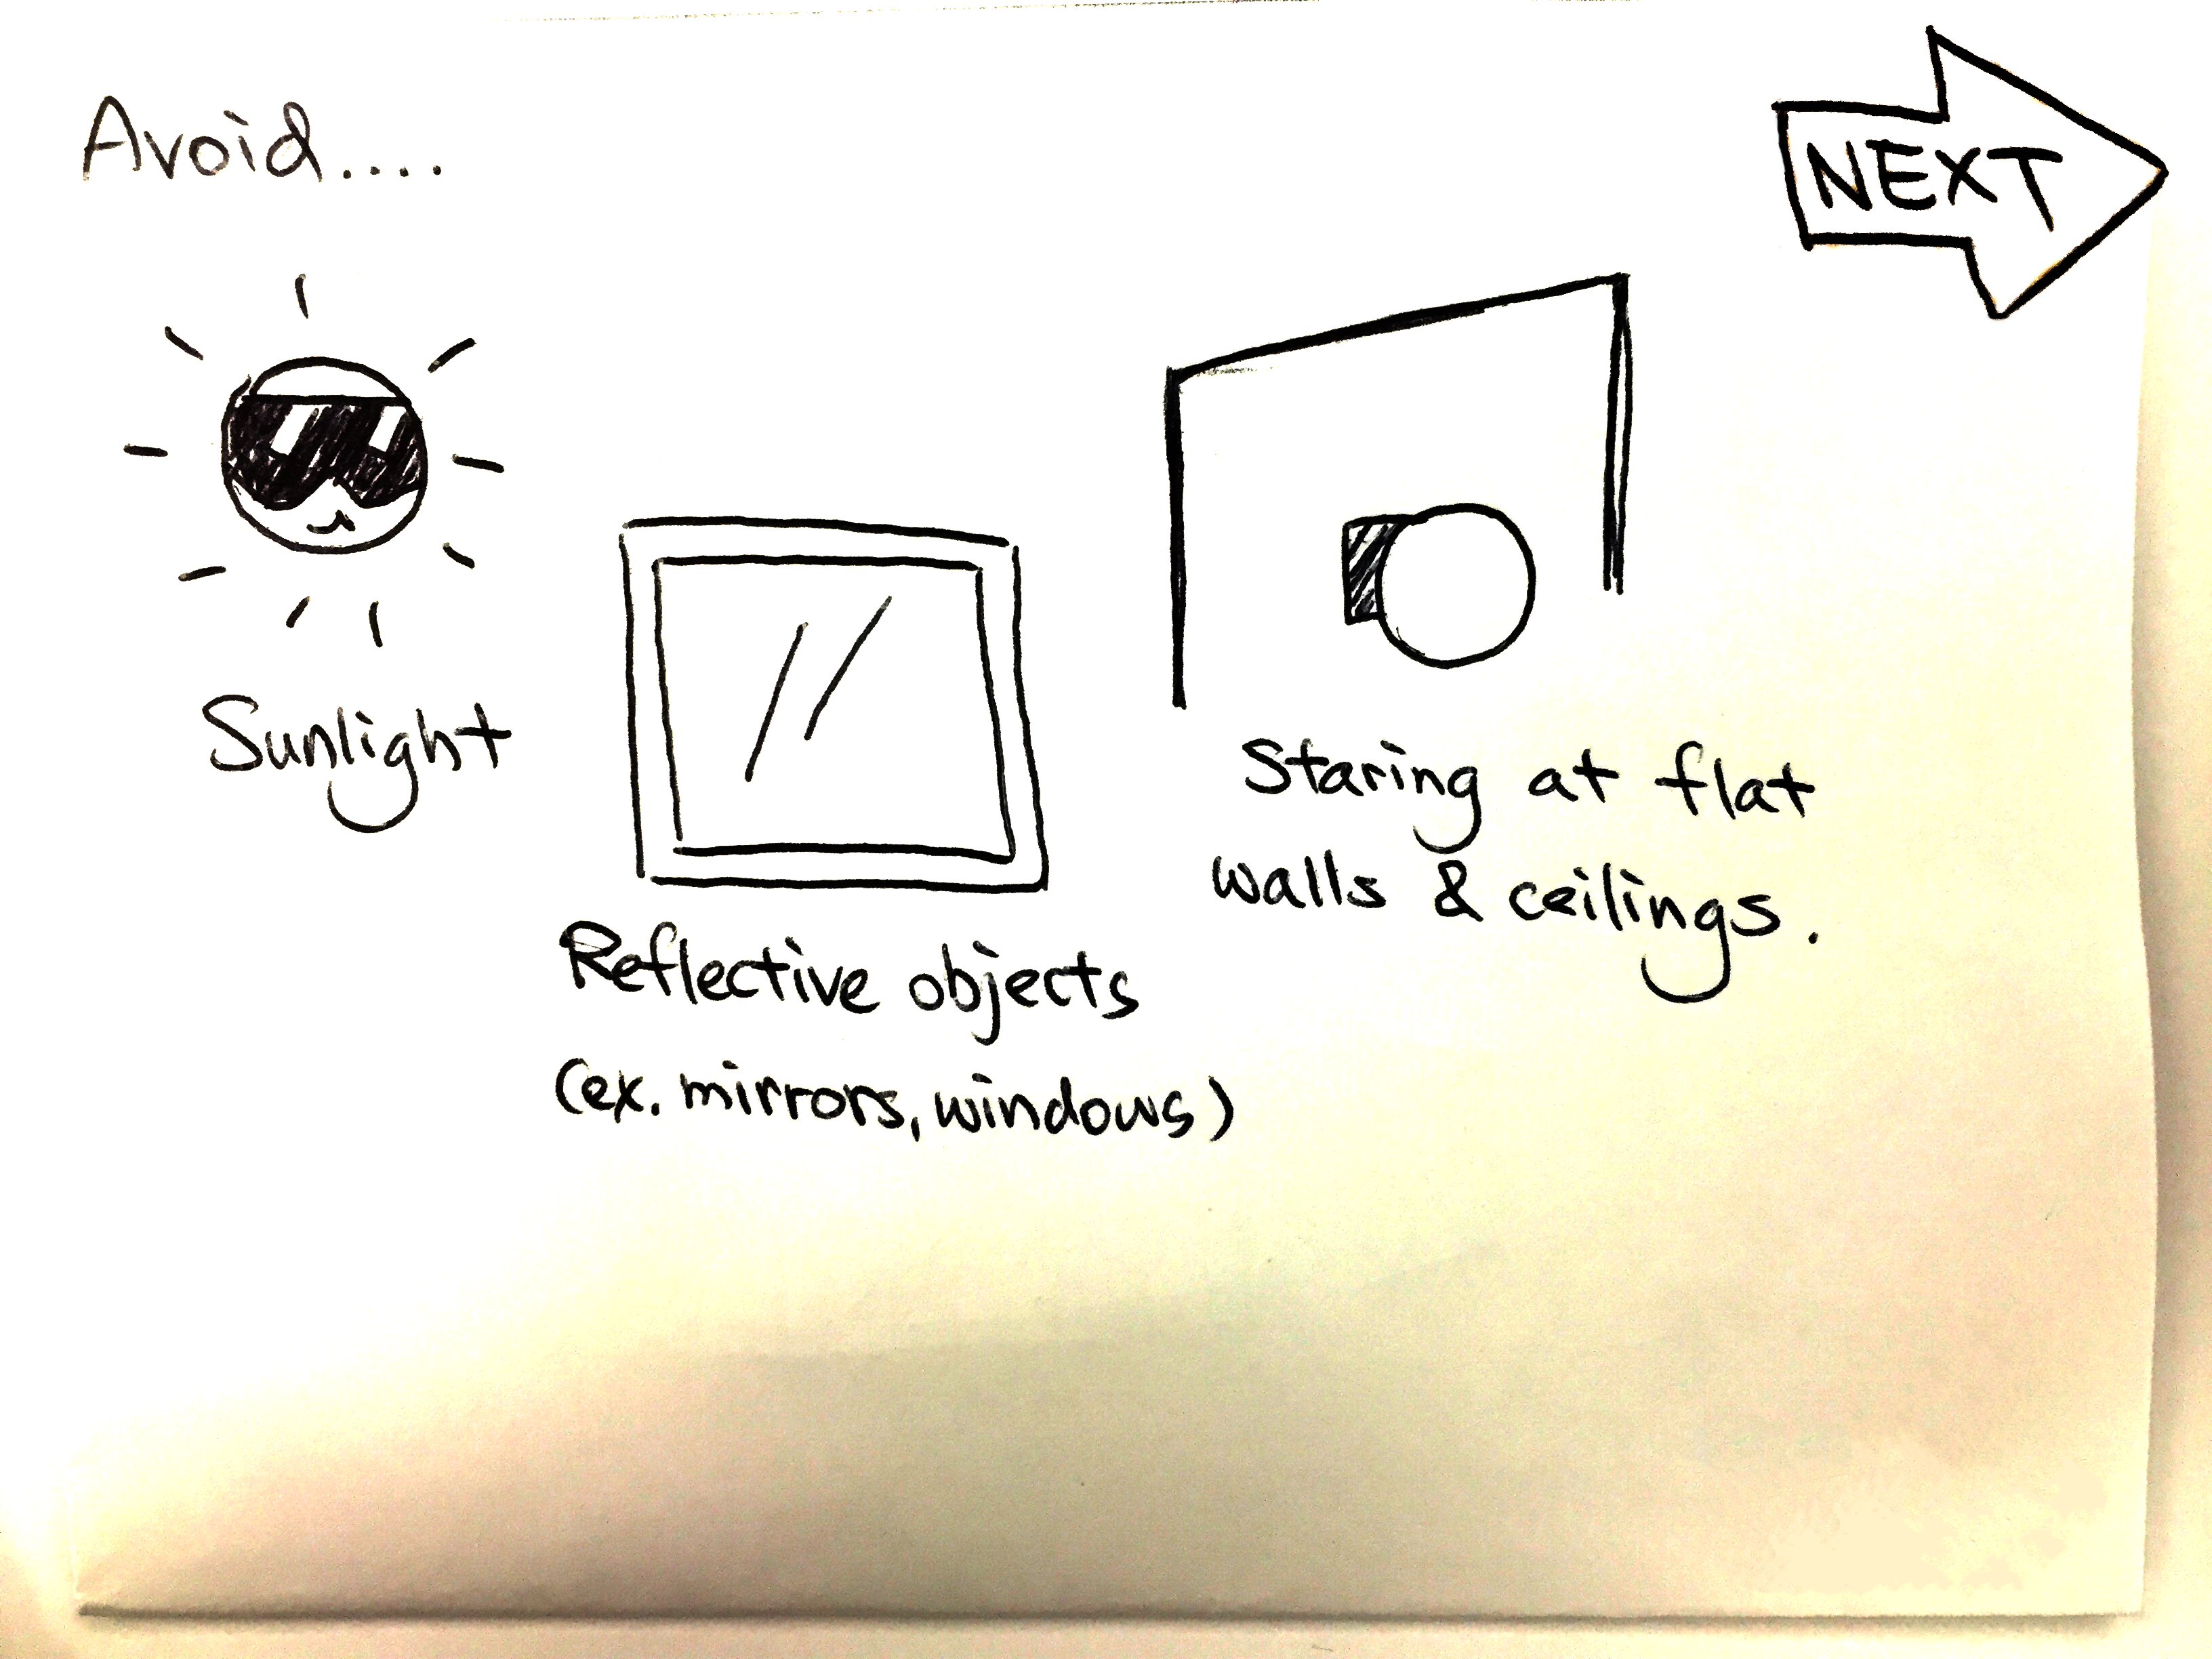 Avoid....
NEXT
Sunlight
Reflective objects
(ex. mirrors, windows)
Staring at flat
walls & ceilings.